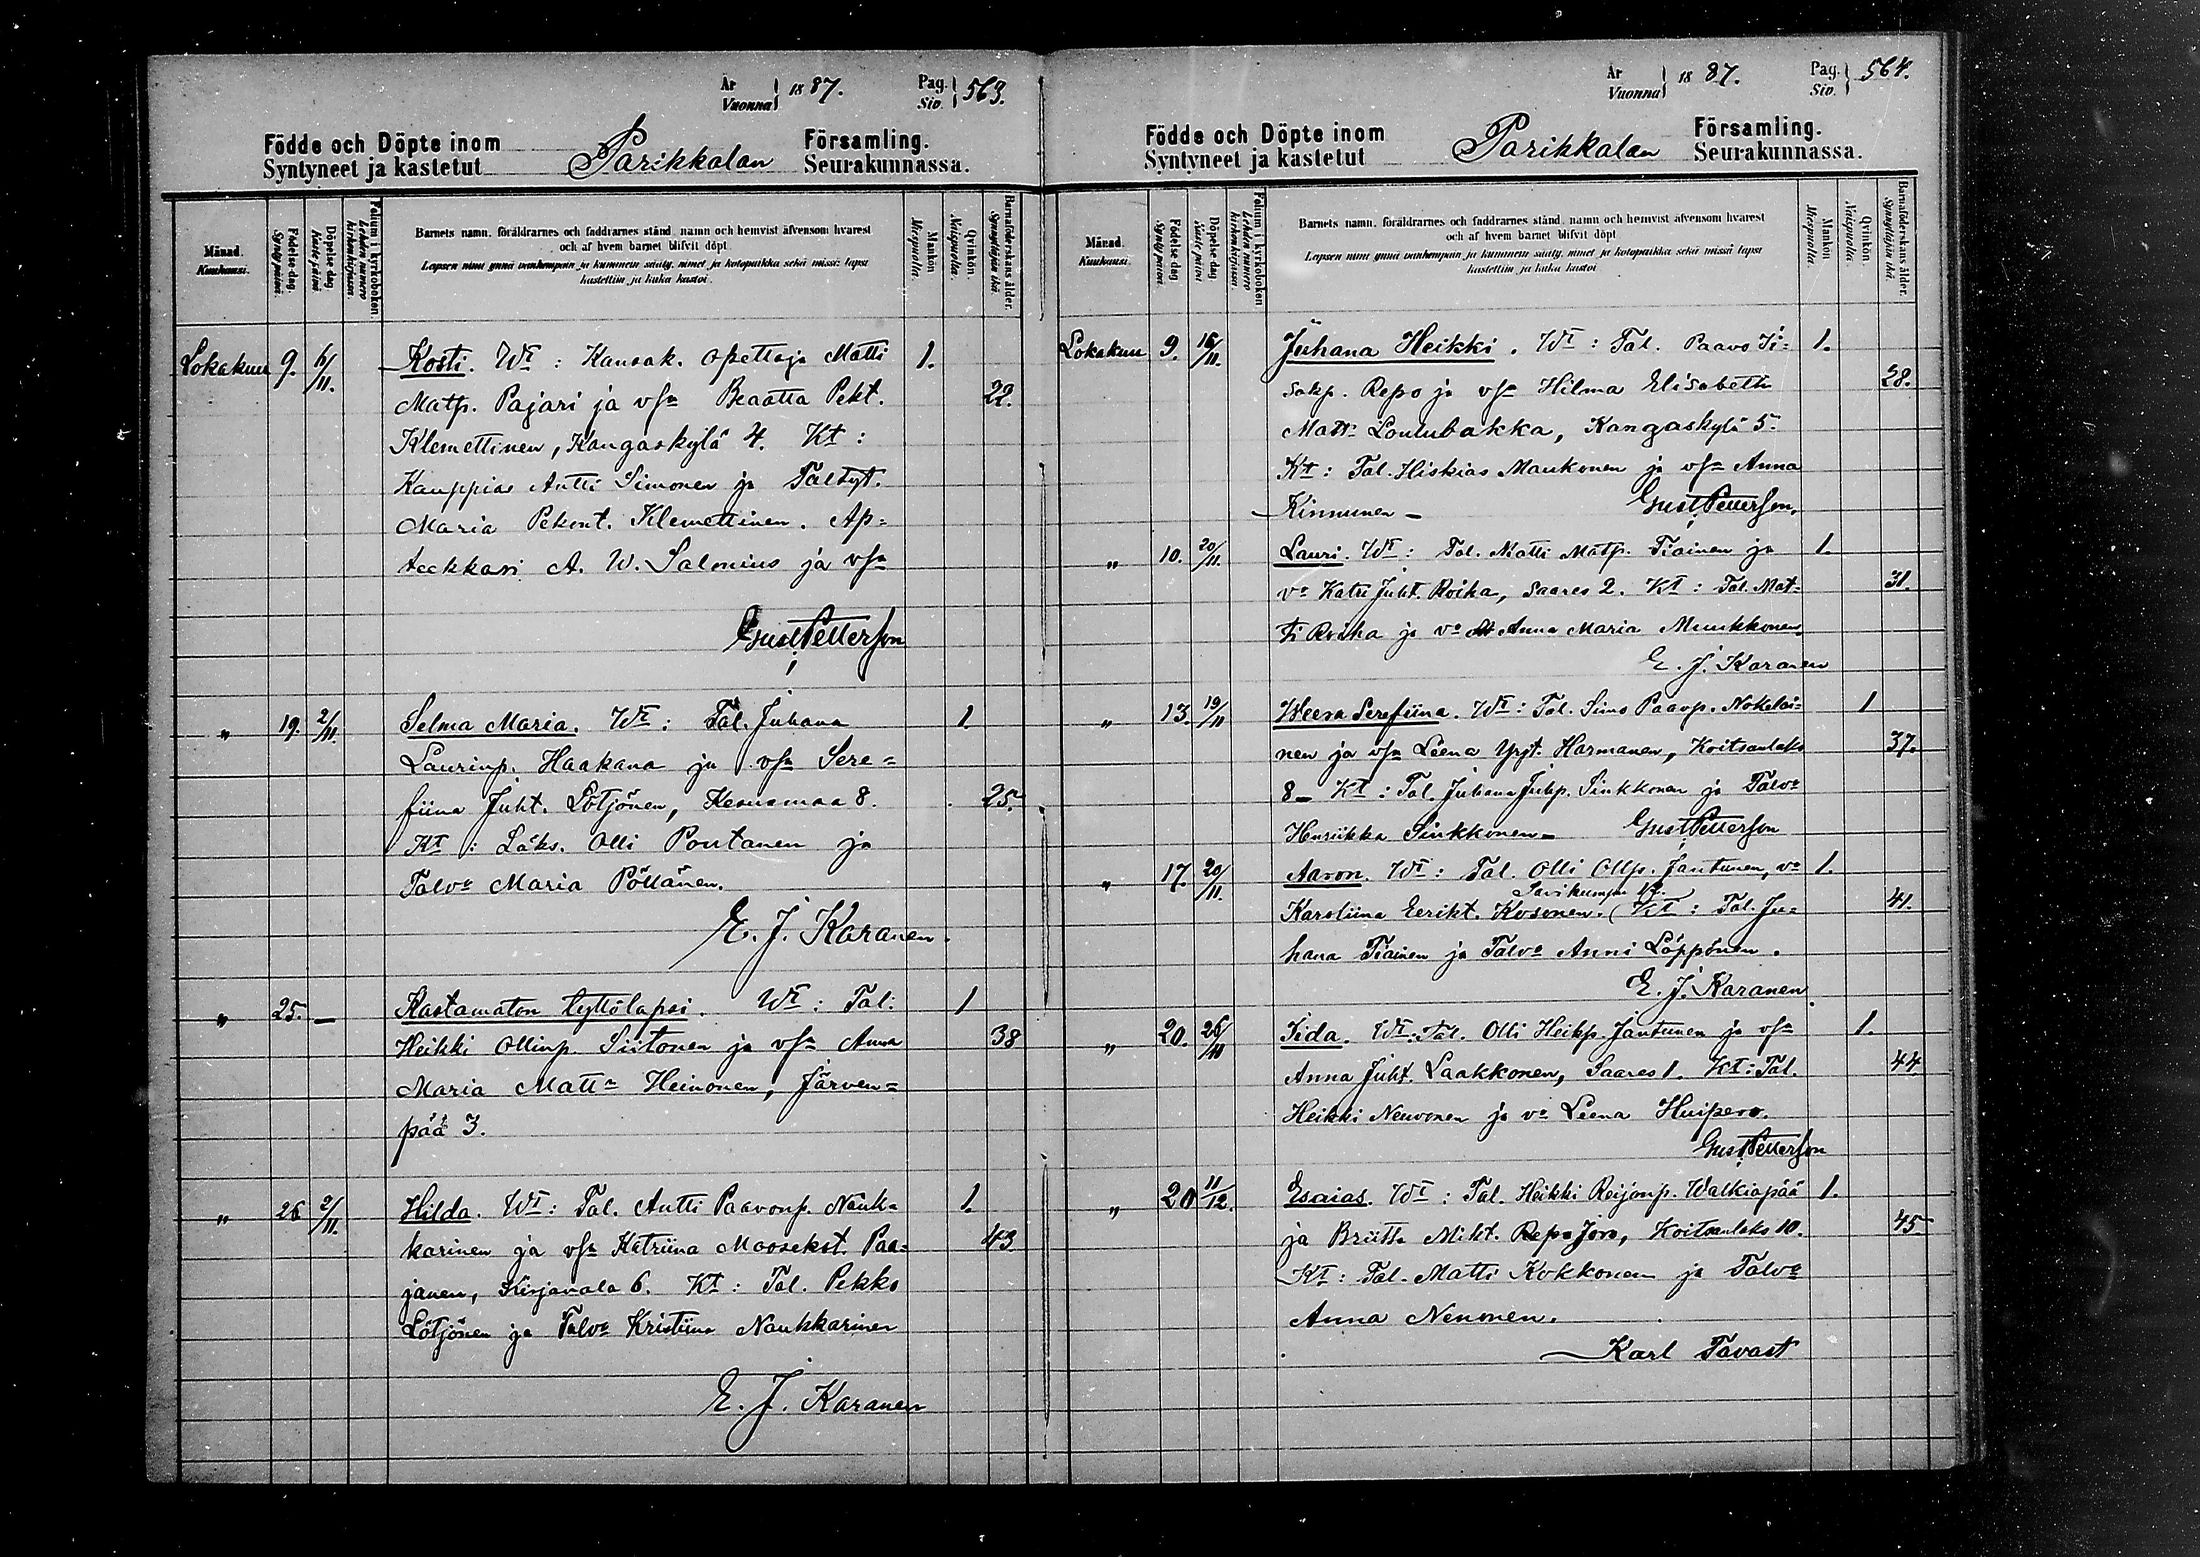 År Vuonna 1887. Pag. Siv. 563.
Födde och Döpte inom Parikkalan Församling.
Syntyneet ja kastetut Seurakunnassa.
Månad. Kuukausi.
Födelse-dag. Syntypäivä.
Döpelse-dag. Kastepäivä
Folium i kyrkoboken. Lehden numero kirkonkirjassa.
Barnets namn, föräldrarnes och faddrarnes stånd, namn och hemvist äfvensom hvarest
och af hvem barnet blifvit döpt.
Lapsen nimi ynnä vanhempain ja kummein sääty, nimet ja kotopaikka sekä missä lapsi
kastettiin ja kuka kastoi.
Mankön Miespuolia.
Qvinkön. Naispuolia.
Barnaföderskans ålder. Synnyttäjän ikä.
Lokakuu 9. 6/11. Kosti. Wt: Kansak. opettaja Matti 1.
Matp. Pajari ja vsa Beaatta Pekt. 22.
Klemettinen, Kangaskylä 4. Kt:
Kauppias Antti Simonen ja Taltyt.
Maria Pekont. Klemettinen. Ap=
teekkari A. W. Salonius ja vsa
Gust. Petterson
" 19. 2/11. Selma Maria. Wt: Tal. Juhana 1.
Laurinp. Haakana ja vsa Sere=
fiina Juht. Lötjönen, Kesusmaa 8. 25.
Kt: Läks. Olli Pontanen ja
Talva Maria Pöllänen.
E. J. Karanen.
" 25. — Kastamaton tyttölapsi. Wt: Tal: 1
Heikki Ollinp. Siitonen ja vsa Anna 38
Maria Matta Heinonen, Järven=
pää 3.
" 26 2/11. Hilda. Wt: Tal. Antti Paavonp. Nauk= 1.
karinen ja vsa Katriina Moosekst. Paa= 43
janen, Kirjavala 6. Kt: Tal. Pekko
Lötjönen ja Talva Kristiina Naukkarinen
E. J. Karanen
År Vuonna 1887. Pag. Siv. 564.
Födde och Döpte inom Parikkalan Församling.
Syntyneet ja kastetut Seurakunnassa.
Månad. Kuukausi.
Födelse-dag Syntypäivä.
Döpelse-dag Kastepäivä
Folium i kyrkoboken Lehden numero kirkonkirjassa.
Barnets namn, föräldrarnes och faddrarnes stånd, namn och hemvist äfvensom hvarest
och af hvem barnet blifvit döpt.
Lapsen nimi ynnä vanhempain ja kummein sääty, nimet ja kotopaikka sekä missä lapsi
kastettiin ja kuka kastoi.
Mankön Miespuolia.
Qvinkön. Naispuolia.
Barnaföderskans ålder. Synnyttäjän ikä.
Lokakuu 9. 16/11. Juhana Heikki. Wt: Tal. Paavo Ii= 1.
sakp. Repo ja vsa Hilma Elisabeth 28.
Matt: Kangaskylä 5.
Kt: Tal. Hiskias Maukonen ja vsa Anna
Kinnunen — Gust. Petterson.
" 10. 20/11. Lauri. Wt: Tal. Matti Matp. Tiainen ja 1.
va Katri Juht. Roiha, Saares 2. Kt: Tal. Mat= 31.
ti Roiha ja va Anna Maria Muukkonen.
E. J. Karanen
" 13. 19/11 Weera Serefiina. Wt: Tal. Simo Paavp. Nokelai= 1
nen ja vsa Leena Yrjt. Harmanen, Koitsanlaks 37.
8— Kt: Tal. Juhana Juhp. Sinkkonen ja Talva
Henriikka Sinkkonen— Gust. Petterson
" 17. 20/11. Aaron. Wt: Tal. Olli Ollp. Jantunen, va 1.
Savikumpu 12.
Karoliina Eerikt. Kosonen. (Kt: Tal. Ju= 41.
hana Tiainen ja Talva Anni Löppönen.
E. J. Karanen
" 20. 26/11 Iida. Wt: Tal. Olli Heikp. Jantunen ja vsa 1.
Anna Juht. Laakkonen, Saares 1. Kt: Tal. 44
Heikki Neuvonen ja va Leena Huipero.
Gust. Petterson
" 20 11/12. Esaias. Wt: Tal. Heikki Reijonp. Walkiapää 1.
ja Briitta Mikt. Koitsanlaks 10. 45
Kt: Tal. Matti Kokkonen ja Talva
Anna Nenonen.
Karl Tavast